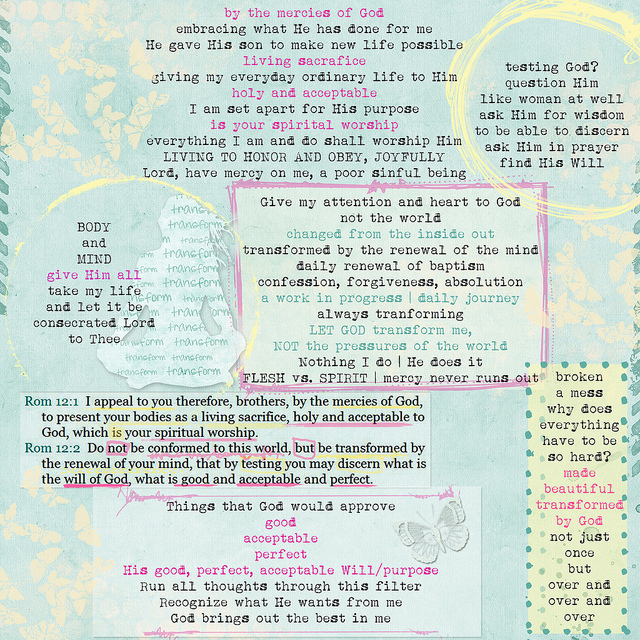 by the mercies of God
embracing what He has done for me
He gave His son to make new life possible
living sacrafice
giving my everyday ordinary life to Him
holy and acceptable
I am set apart for His purpose
is your spirital worship
everything I am and do shall worship Him
LIVING TO HONOR AND OBEY, JOYFULLY
Lord, have mercy on me, a poor sinful being
testing God?
question Him
like woman at well
ask Him for wisdom
to be able to discern
ask Him in prayer
find His Will
BODY
and
MIND
give Him all
take my life
and let it be
consecrated Lord
to Thee
transform
transform
transform
transform
transform
transform
transform
transform
transform
transform
transform transform
transform transform
Give my attention and heart to God
not the world
changed from the inside out
transformed by the renewal of the mind
daily renewal of baptism
confession, forgiveness, absolution
a work in progress | daily journey
always tranforming
LET GOD transform me,
NOT the pressures of the world
Nothing I do | He does it
FLESH vs. SPIRIT | mercy never runs out
Rom 12:1 I appeal to you therefore, brothers, by the mercies of God,
to present your bodies as a living sacrifice, holy and acceptable to
God, which is your spiritual worship.
Rom 12:2 Do not be conformed to this world, but be transformed by
the renewal of your mind, that by testing you may discern what is
the will of God, what is good and acceptable and perfect.
broken
a mess
why does
everything
have to be
so hard?
made
beautiful
transformed
by God
not just
once
but
over and
over and
over
Things that God would approve
good
acceptable
perfect
His good, perfect, acceptable Will/purpose
Run all thoughts through this filter
Recognize what He wants from me
God brings out the best in me